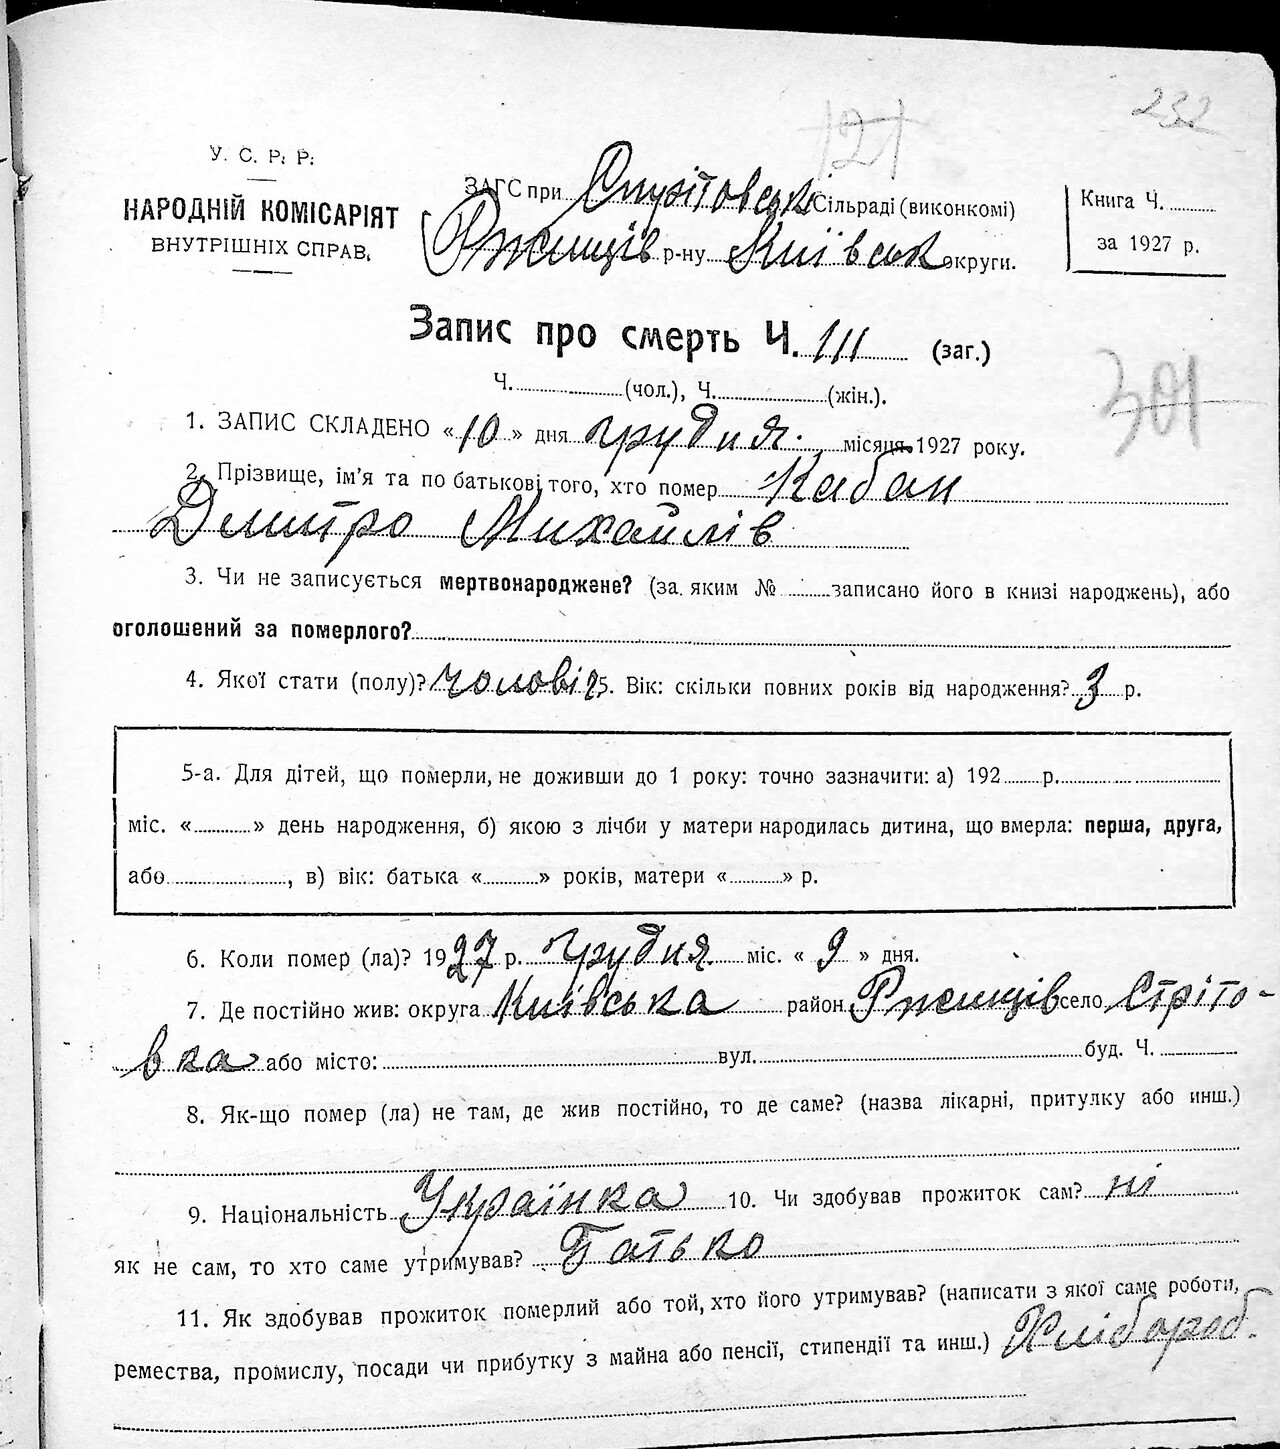 232
121
У. С. Р. Р.
НАРОДНІЙ КОМІСАРІЯТ
ВНУТРІШНІХ СПРАВ.
ЗАГС при Стрітовські Сільраді (виконкомі)
Ржищів р-ну Київськ округи.
Книга Ч.
за 1927 р.
Запис про смерть Ч. 111 (заг.)
Ч. (чол.), Ч. (жін.).
301
1. ЗАПИС СКЛАДЕНО « 10 » дня грудня місяця 1927 року.
2. Прізвище, ім'я та по батькові того, хто помер Кабан
Дмитро Михайлів
3. Чи не записується мертвонароджене? (за яким № записано його в книзі народжень), або
оголошений за померлого?
4. Якої стати (полу)? чоловіч 5. Вік: скільки повних років від народження? 3 р.
5-а. Для дітей, що померли, не доживши до 1 року: точно зазначити: а) 192 р.
міс. « » день народження, б) якою з лічби у матери народилась дитина, що вмерла: перша, друга,
або , в) вік: батька « » років, матери « » р.
6. Коли помер (ла)? 1927 р. грудня міс. « 9 » дня.
7. Де постійно жив: округа Київська район Ржищів село Стріто-
вка або місто: вул. буд. Ч.
8. Як-що помер (ла) не там, де жив постійно, то де саме? (назва лікарні, притулку або инш.)
9. Національність Українка 10. Чи здобував прожиток сам? ні
як не сам, то хто саме утримував? Батько
11. Як здобував прожиток померлий або той, хто його утримував? (написати з якої саме роботи,
ремества, промислу, посади чи прибутку з майна або пенсії, стипендії та инш.) Хлібороб.